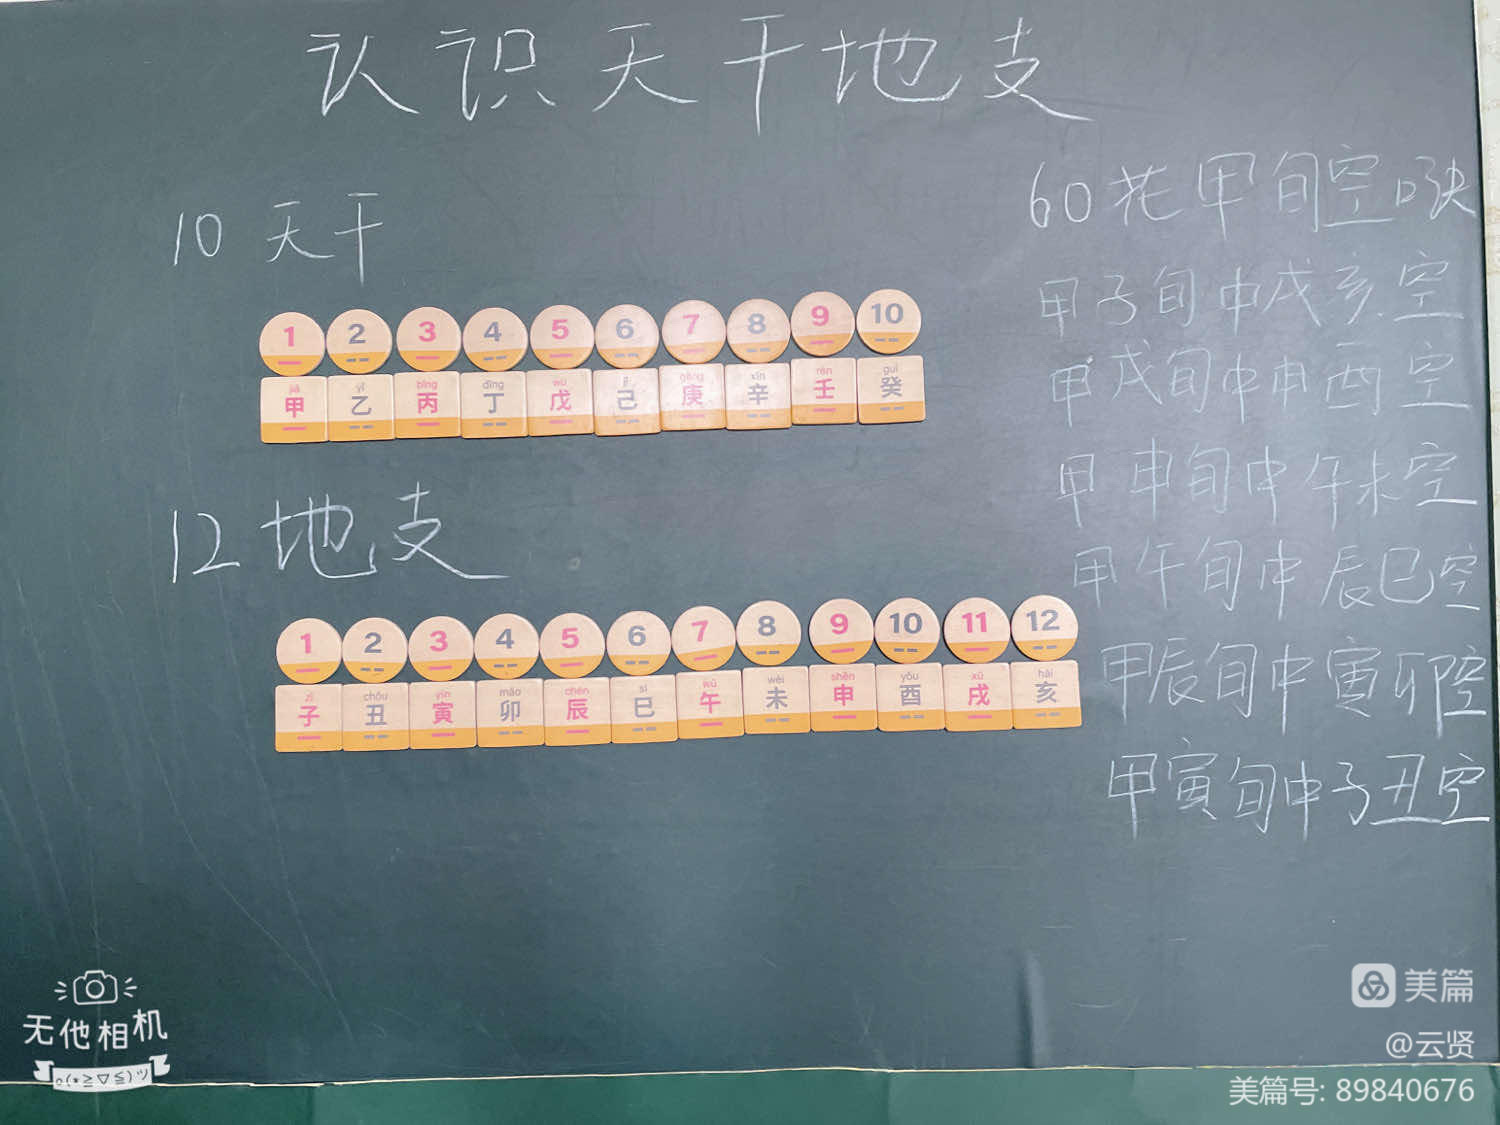 认识天干地支
10天干
1 2 3 4 5 6 7 8 9 10
jiǎ yǐ bǐng dīng wù jǐ gēng xīn rén guǐ
甲 乙 丙 丁 戊 己 庚 辛 壬 癸
12地支
1 2 3 4 5 6 7 8 9 10 11 12
zǐ chǒu yín mǎo chén sì wǔ wèi shēn yǒu xū hài
子 丑 寅 卯 辰 巳 午 未 申 酉 戌 亥
60花甲旬空诀
甲子旬中戌亥空
甲戌旬中申酉空
甲申旬中午未空
甲午旬中辰巳空
甲辰旬中寅卯空
甲寅旬中子丑空
无他相机
美篇
@云贤
美篇号: 89840676